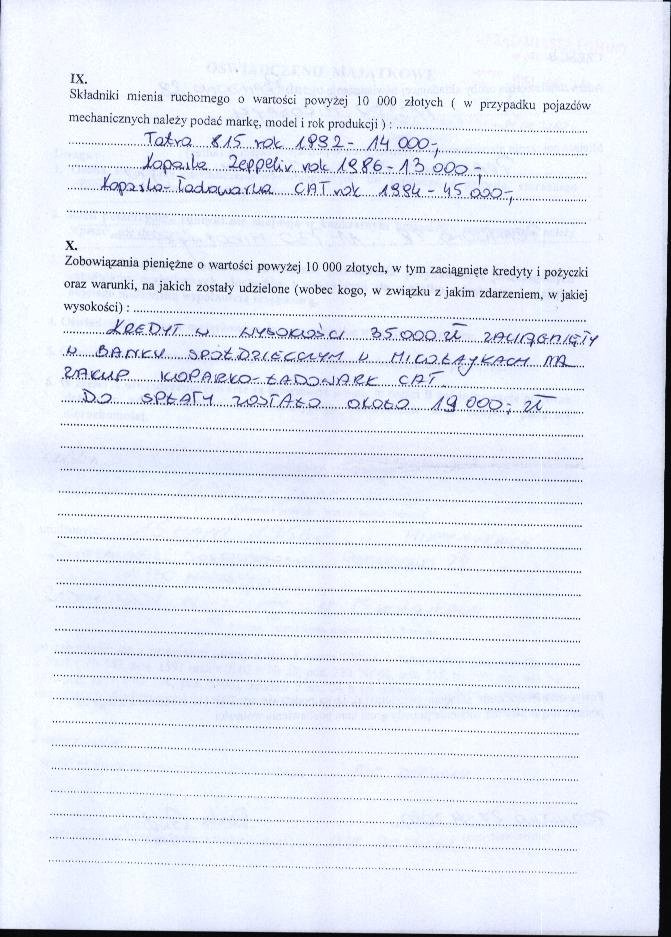 IX.
Składniki mienia ruchomego o wartości powyżej 10 000 złotych ( w przypadku pojazdów
mechanicznych należy podać markę, model i rok produkcji ) :
Tatra 815 rok 1992 - 14 000-,
Koparka Zeppeliv rok 1986 - 13 000 -,
Koparko-Ładowarka CAT rok 1994 - 45 000-,
X.
Zobowiązania pieniężne o wartości powyżej 10 000 złotych, w tym zaciągnięte kredyty i pożyczki
oraz warunki, na jakich zostały udzielone (wobec kogo, w związku z jakim zdarzeniem, w jakiej
wysokości) :
KREDYT W WYSOKOŚCI 35000 ZŁ ZACIĄGNIĘTY
W BANKU SPÓŁDZIELCZYM W MIKOŁAJKACH NA
ZAKUP KOPARKO-ŁADOWARK CAT.
DO SPŁATY ZOSTAŁO OKOŁO 19 000,- ZŁ